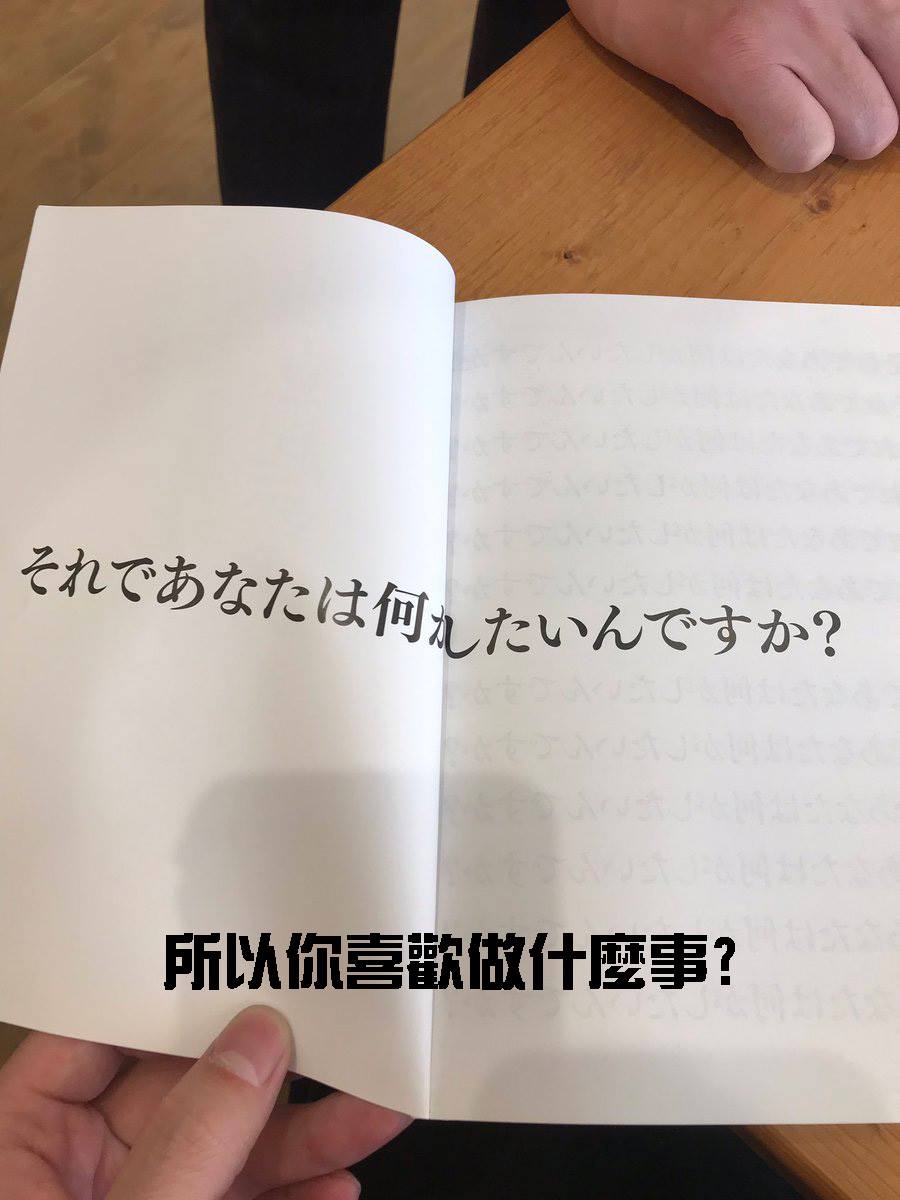 それであなたは何がしたいんですか?
所以你喜歡做什麼事?